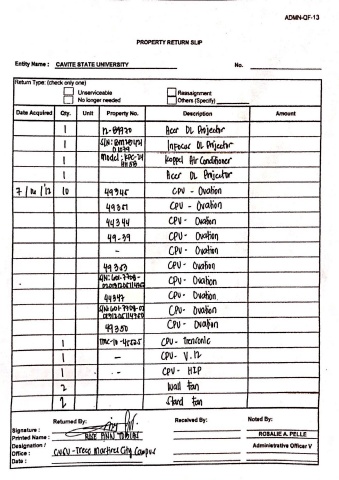 ADMN-QF-13
PROPERTY RETURN SLIP
Entity Name : CAVITE STATE UNIVERSITY No.
Return Type: (check only one)
Unserviceable Reassignment
No longer needed Others (Specify)
Date Acquired Qty. Unit Property No. Description Amount
1 Acer DL Projector
1 Infocus DL Projector
1 Model : Koppel Air Conditioner
1 Acer DL Projector
10 49345 CPU - Ovation
49351 CPU - Ovation
44344 CPU - Ovation
49-39 CPU - Ovation
- CPU - Ovation
49353 CPU - Ovation
CPU - Ovation
49347 CPU - Ovation
CPU - Ovation
49350 CPU - Ovation
1 CPU - Trentonic
1 - CPU - V.12
1 - CPU - HIP
2 Wall fan
2 Stand fan
Returned By: Received By: Noted By:
Signature :
Printed Name : ROSE ANN ROSALIE A. PELLE
Designation / Administrative Officer V
Office : CvSU - Trece Martires City Campus
Date :